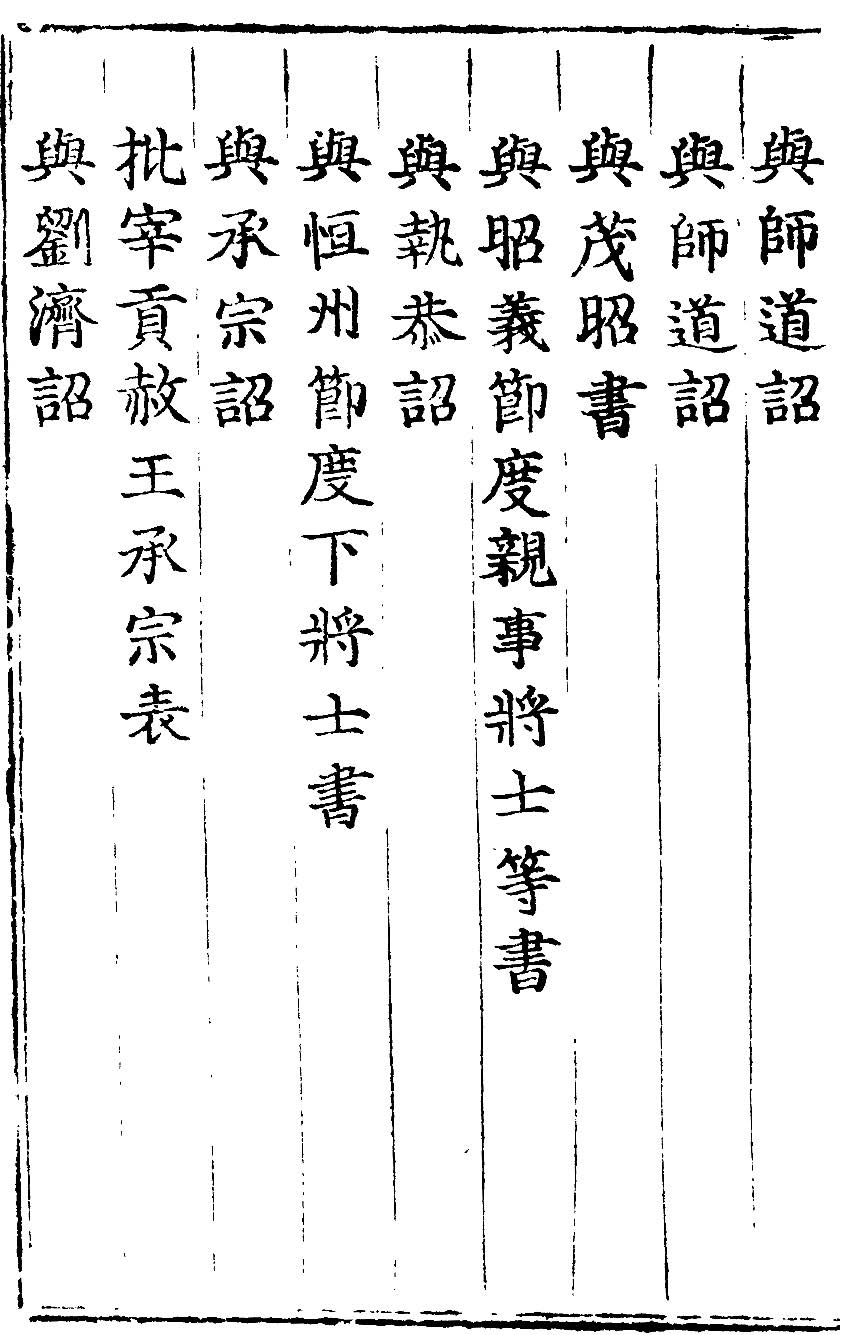 與師道詔
與師道詔
與茂昭書
與昭義節度親事將士等書
與執恭詔
與恒州節度下將士書
與承宗詔
批宰貢赦王承宗表
與劉濟詔